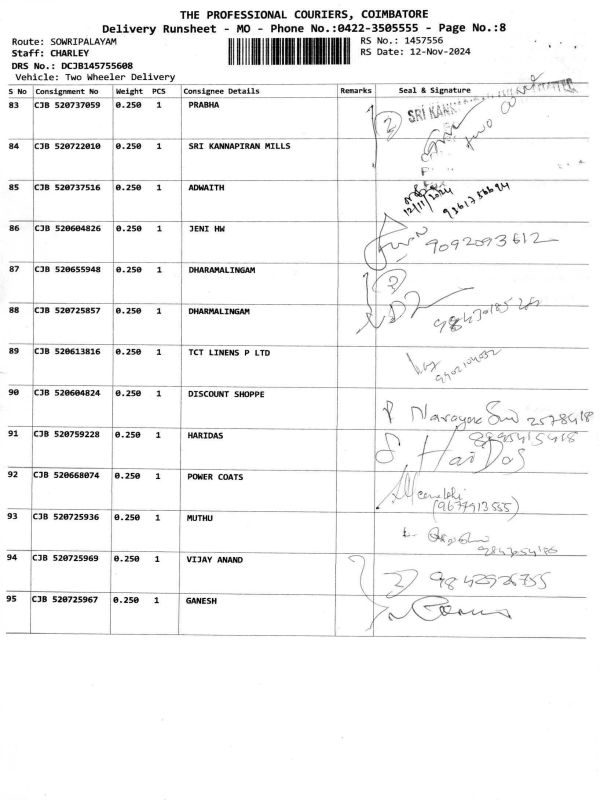 THE PROFESSIONAL COURIERS, COIMBATORE
Delivery Runsheet - MO - Phone No.:0422-3505555 - Page No.:8
Route: SOWRIPALAYAM RS No.: 1457556
Staff: CHARLEY RS Date: 12-Nov-2024
DRS No.: DCJB145755608
Vehicle: Two Wheeler Delivery
S No Consignment No Weight PCS Consignee Details Remarks Seal & Signature
83 CJB 520737059 0.250 1 PRABHA
2 SRI KANN
two
84 CJB 520722010 0.250 1 SRI KANNAPIRAN MILLS
85 CJB 520737516 0.250 1 ADWAITH
12/11/2024
86 CJB 520604826 0.250 1 JENI HW 9092093612
87 CJB 520655948 0.250 1 DHARAMALINGAM
88 CJB 520725857 0.250 1 DHARMALINGAM
89 CJB 520613816 0.250 1 TCT LINENS P LTD
90 CJB 520604824 0.250 1 DISCOUNT SHOPPE
2578418
91 CJB 520759228 0.250 1 HARIDAS
S HariDas
92 CJB 520668074 0.250 1 POWER COATS
(9677913555)
93 CJB 520725936 0.250 1 MUTHU
94 CJB 520725969 0.250 1 VIJAY ANAND
2
95 CJB 520725967 0.250 1 GANESH